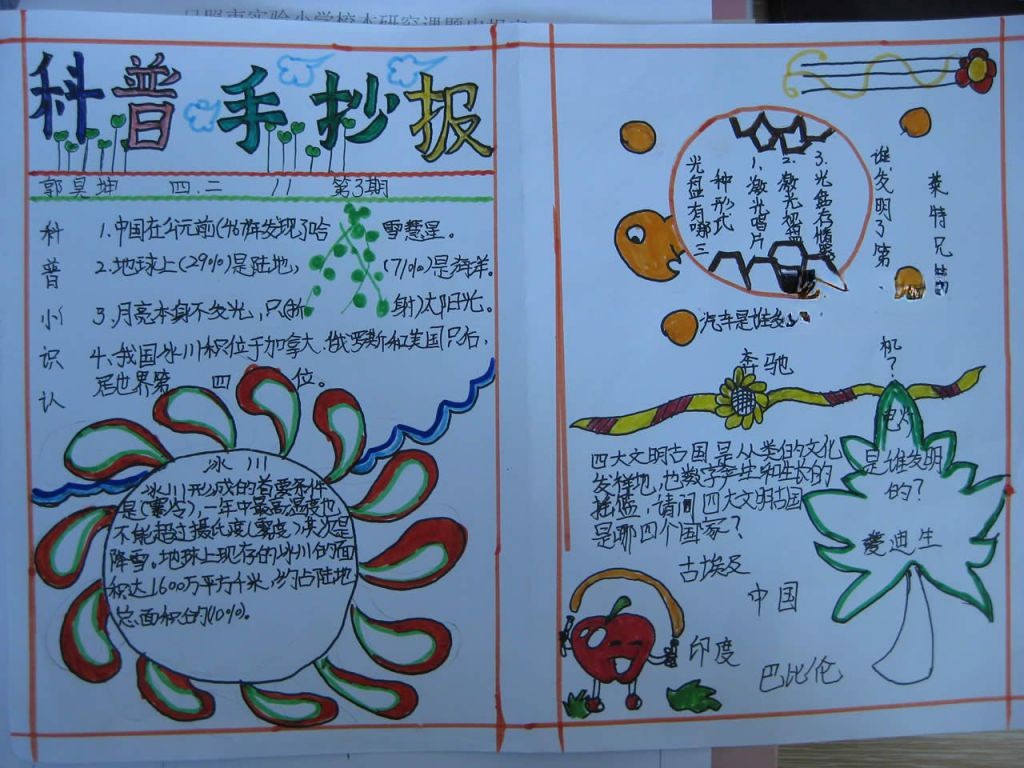 科普手抄报
郭昊坤 四.二 11 第3期
科普小识认
1.中国在公元前(46年发现了哈 雷慧星。
2.地球上(29%)是陆地, (71%)是海洋。
3.月亮本身不发光,只(折 射)太阳光。
4、我国冰川积位于加拿大.俄罗斯和美国只右,
居世界第 四 位。
冰川
冰川形成的首要条件
是(寒冷),一年中最高温度也
不能超过摄氏度(零度)其次是
降雪。地球上现存的冰川的面
积达1600万平方千米,约占陆地
总面积的(10%)。
光盘有哪三
种形式
1.激光唱片
2.激光视盘
谁发明了第
机?
莱特兄弟
汽车是谁发
奔驰
四大文明古国是人类的文化
发祥地,也数字产生和生长的
摇篮,请问四大文明古国
是哪四个国家?
古埃及
中国
印度
巴比伦
电灯
是谁发明
的?
爱迪生